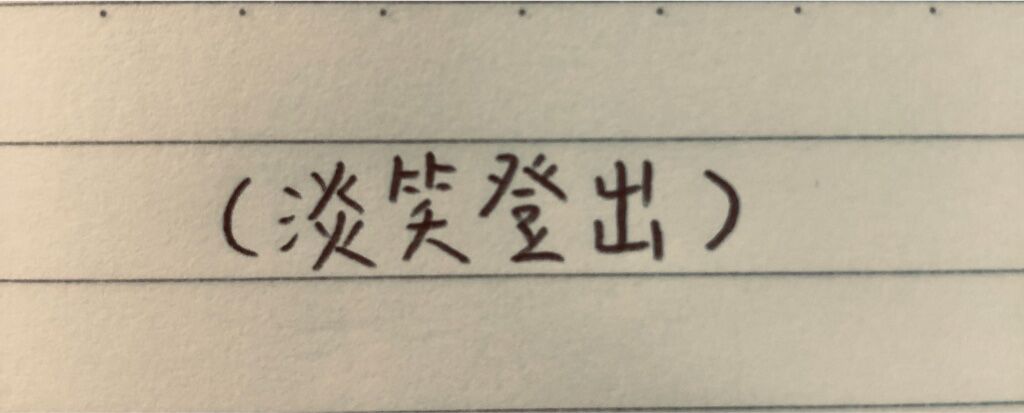 (淡笑登出)